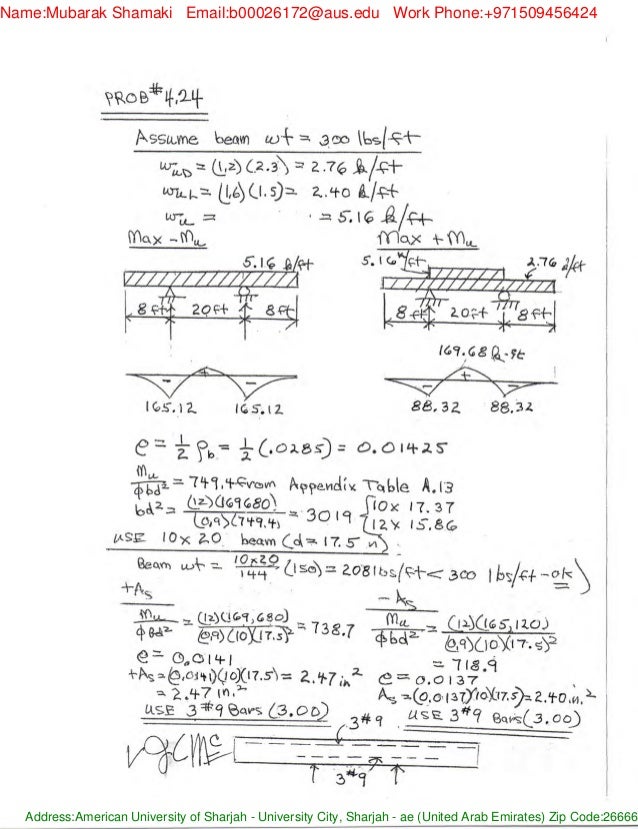 Name:Mubarak Shamaki Email:b00026172@aus.edu Work Phone:+971509456424
PROB#4.24
Assume beam wt = 300 lbs/ft
wuD = (1.2)(2.3) = 2.76 k/ft
wuL = (1.6)(1.5) = 2.40 k/ft
wu = = 5.16 k/ft
Max -Mu
Max +Mu
5.16 k/ft
5.16 k/ft
2.76 k/ft
8 ft 20 ft 8 ft
8 ft 20 ft 8 ft
169.68 k-ft
+
- -
+
- -
165.12 165.12
88.32 88.32
ρ = 1/2 ρb = 1/2 (.0285) = 0.01425
Mu/φbd² = 749.4 from Appendix Table A.13
bd² = (12)(169680)/(0.9)(749.4) = 3019 { 10 x 17.37
12 x 15.86
USE 10 x 20 beam (d = 17.5 in)
Beam wt = 10x20/144 (150) = 208 lbs/ft < 300 lbs/ft - ok
+As
Mu/φbd² = (12)(169,680)/(0.9)(10)(17.5)² = 738.7
ρ = 0.0141
+As = (0.0141)(10)(17.5) = 2.47 in²
= 2.47 in.²
USE 3 #9 Bars (3.00)
-As
Mu/φbd² = (12)(165,120)/(0.9)(10)(17.5)²
= 718.9
ρ = 0.0137
As = (0.0137)(10)(17.5) = 2.40 in.²
USE 3 #9 Bars (3.00)
3 #9
3 #9
Address:American University of Sharjah - University City, Sharjah - ae (United Arab Emirates) Zip Code:26666